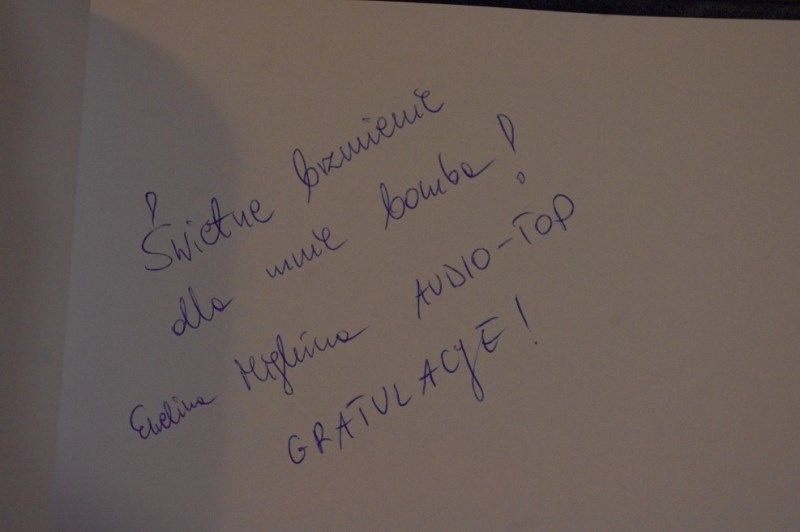 Świetne brzmienie
dla mnie bomba!
Ewelina AUDIO-TOP
GRATULACJE!